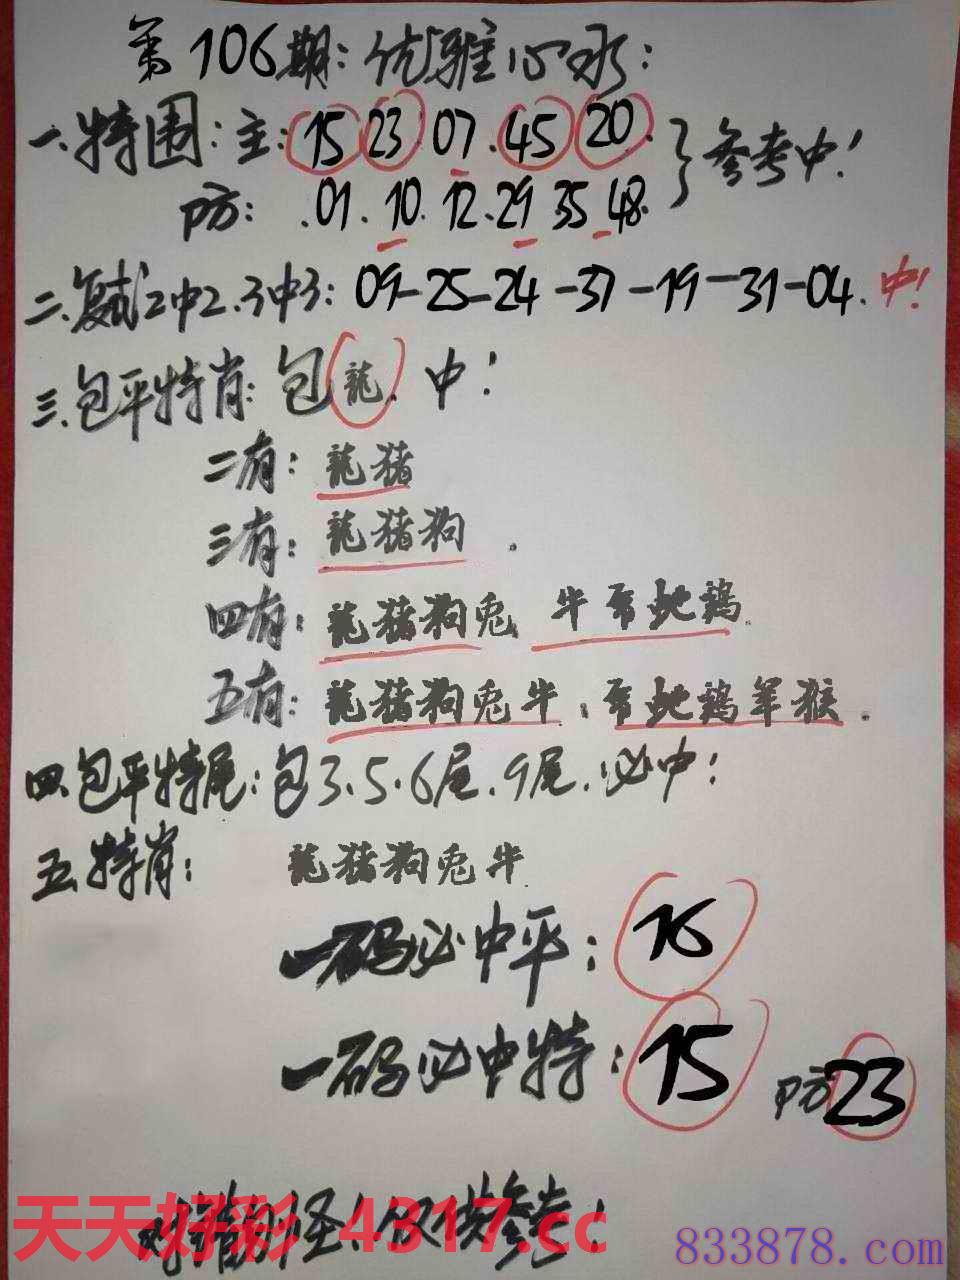 第106期:优雅心水:
一.特围:主:15 23 07.45 20.
防: .01.10.12.29 35 48.
}参考中!
二.复式2中2.3中3: 09-25-24-37-19-31-04.中!
三.包平特肖:包龍.中!
二有:龍猪
三有:龍猪狗.
四有:龍猪狗兔 牛虎蛇鸡.
五有:龍猪狗兔牛:虎蛇鸡羊猴.
四.包平特尾:包3.5.6尾.9尾.必中:
五.特肖: 龍猪狗兔牛
一码必中平:16
一码必中特:15 防23
对错勿怪!仅供参考!
天天好彩 4317.cc
833878.com